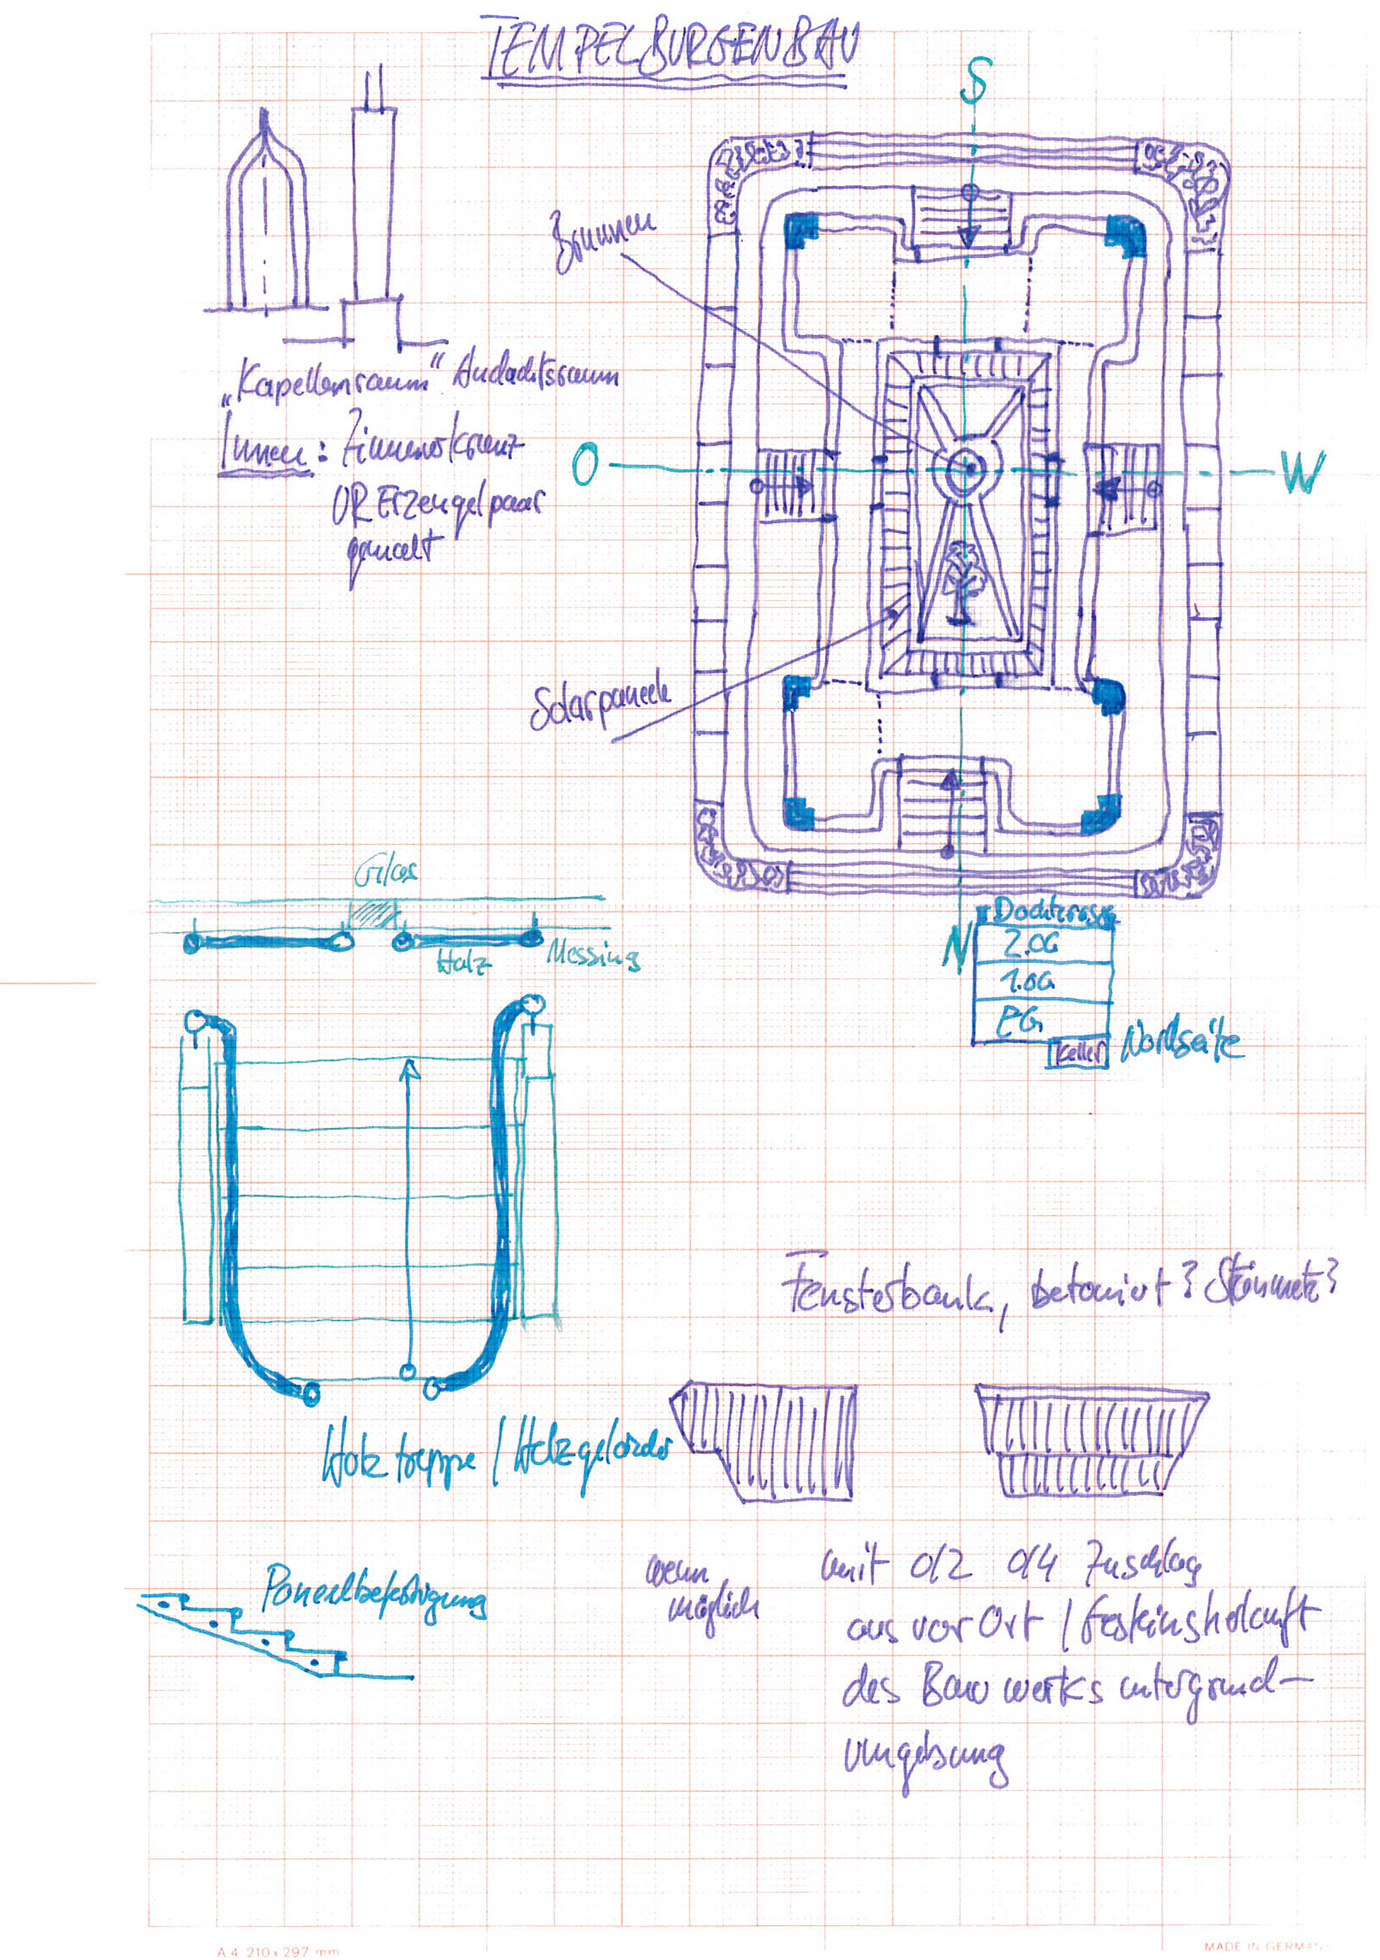 TEMPELBURGENBAU
S
Brunnen
„Kapellenraum" Andachtsraum
Innen: Zinnenkranz
OR Erzengelpaar
gemalt
O
W
Solarpaneele
Glas
Holz
Messing
N
Dachterasse
2.OG
1.OG
EG
Keller
Nordseite
Fensterbank, betoniert? Steinmetz?
Holztreppe / Holzgeländer
Paneelbefestigung
wenn
möglich
mit 0/2 0/4 Zuschlag
aus vor Ort / Gesteinsherkunft
des Bauwerksuntergrund-
umgebung
A 4 210 x 297 mm
MADE IN GERMANY